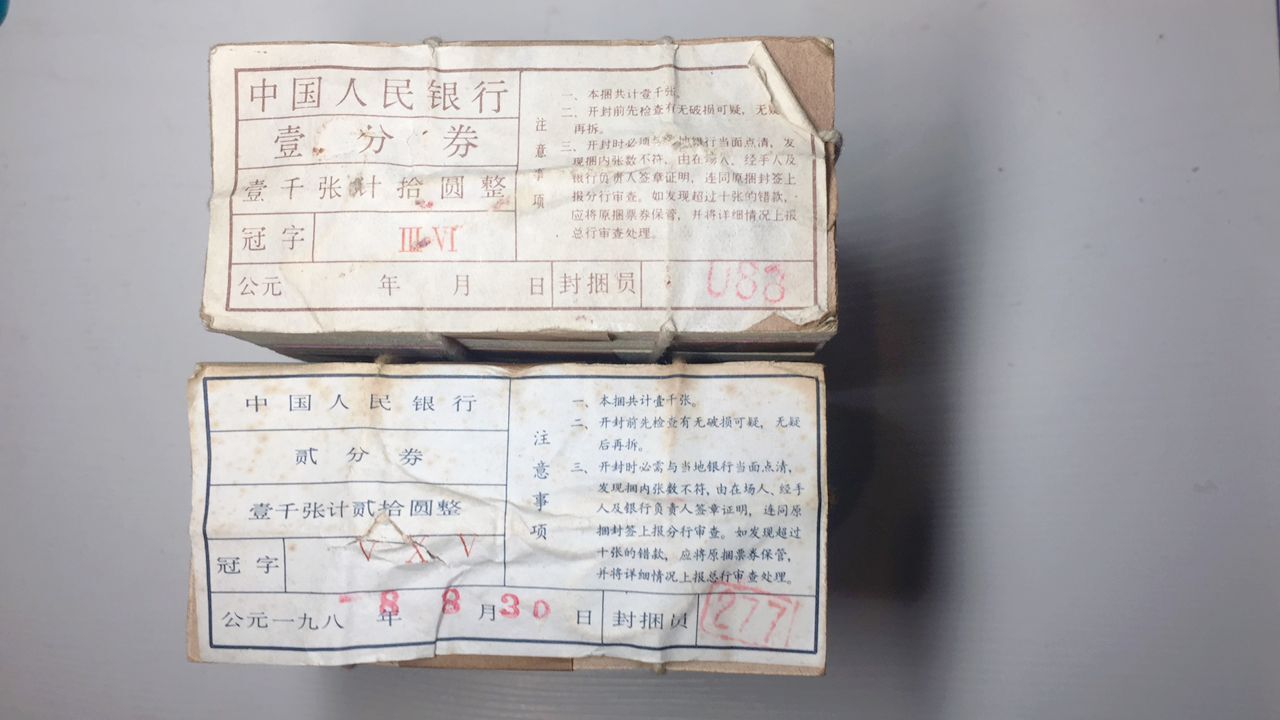 中国人民银行
壹分券
壹千张计拾圆整
冠字 Ⅲ Ⅵ
公元 年 月 日 封捆员 088
注意事项
一、本捆共计壹千张。
二、开封前先检查有无破损可疑，无疑
再拆。
三、开封时必须与当地银行当面点清，发
现捆内张数不符，由在场人、经手人及
银行负责人签章证明，连同原捆封签上
报分行审查。如发现超过十张的错款，
应将原捆票券保管，并将详细情况上报
总行审查处理。
中国人民银行
贰分券
壹千张计贰拾圆整
冠字 V X V
公元一九八 年 8 8 月 30 日 封捆员 277
注意事项
一、本捆共计壹千张。
二、开封前先检查有无破损可疑，无疑
后再拆。
三、开封时必需与当地银行当面点清，
发现捆内张数不符，由在场人、经手
人及银行负责人签章证明，连同原
捆封签上报分行审查。如发现超过
十张的错款，应将原捆票券保管，
并将详细情况上报总行审查处理。